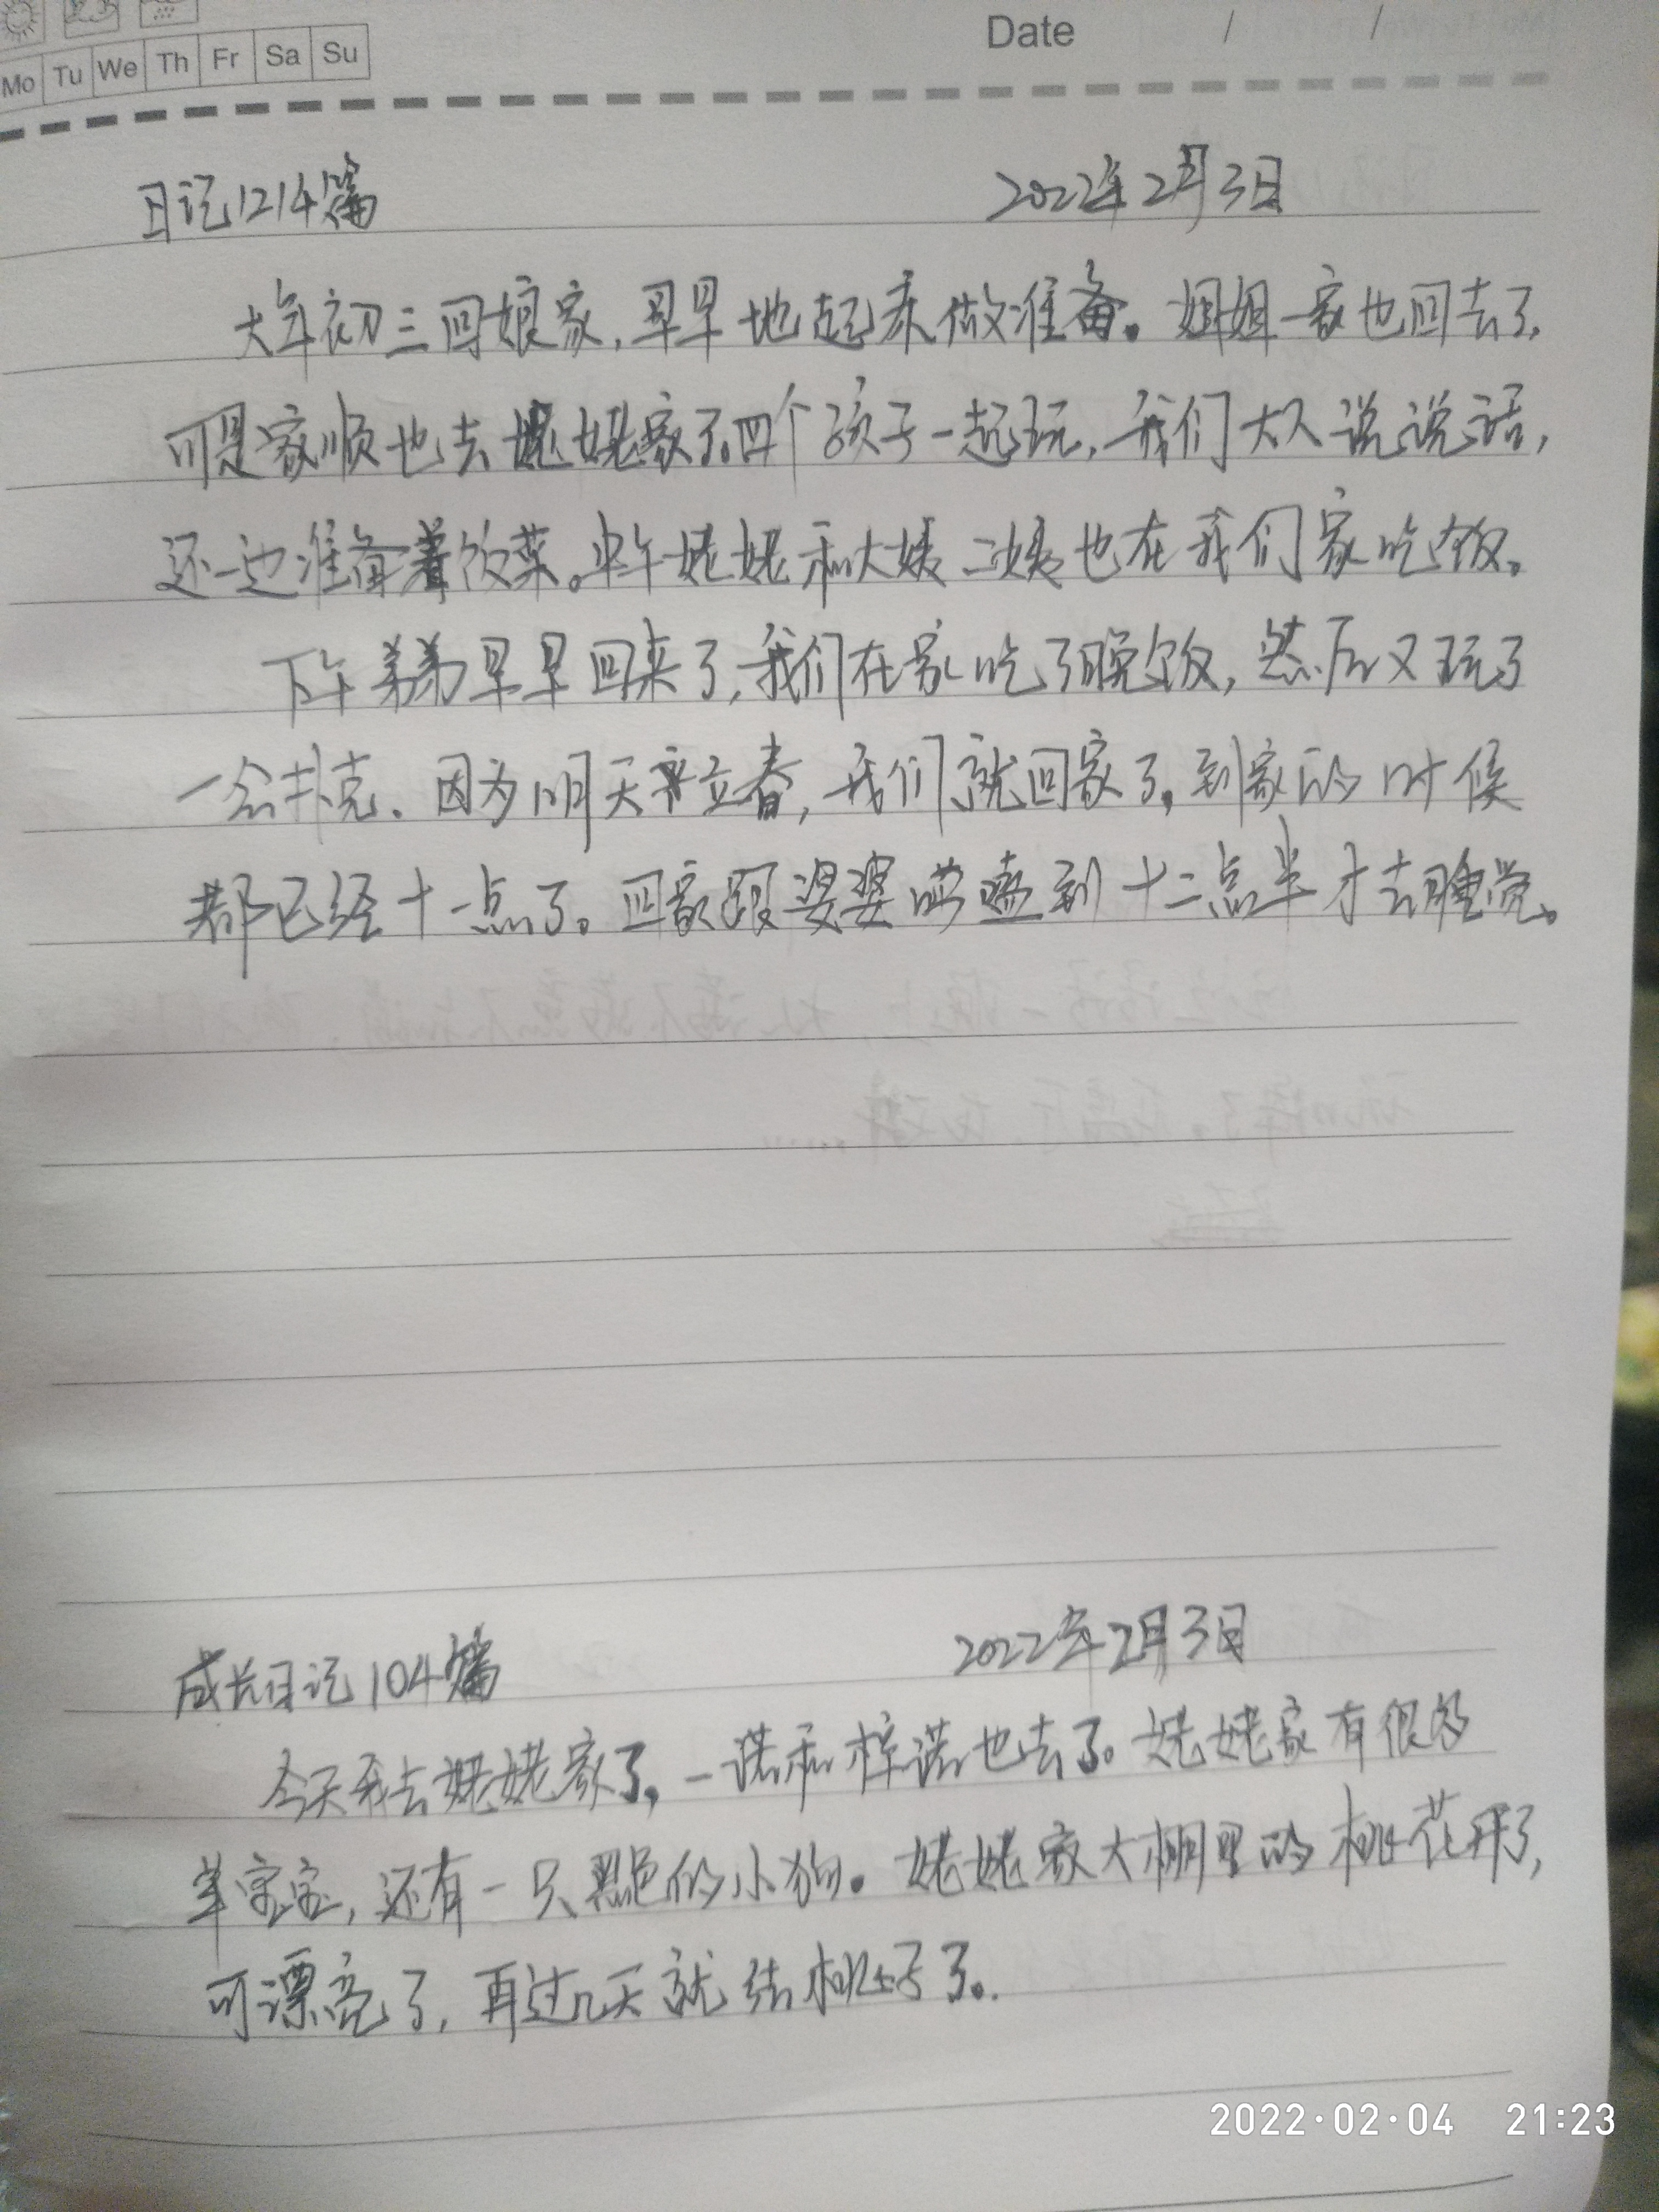 Date / /
Mo Tu We Th Fr Sa Su
日记1214篇 2022年2月3日
大年初三回娘家,早早地起来做准备。姐姐一家也回去了,
可是家顺也去姥姥家了。四个孩子一起玩,我们大人说说话,
还一边准备着饭菜。中午姥姥和大姨二姨也在我们家吃饭。
下午弟弟早早回来了,我们在家吃了晚饭,然后又玩了
一会扑克。因为明天立春,我们就回家了。到家的时候
都已经十一点了。回家跟婆婆唠嗑到十二点半才去睡觉。
成长日记104篇 2022年2月3日
今天我去姥姥家了,一诺和梓诺也去了。姥姥家有很多
羊宝宝,还有一只黑色的小狗。姥姥家大棚里的桃花开了,
可漂亮了,再过几天就结桃子了。
2022·02·04 21:23